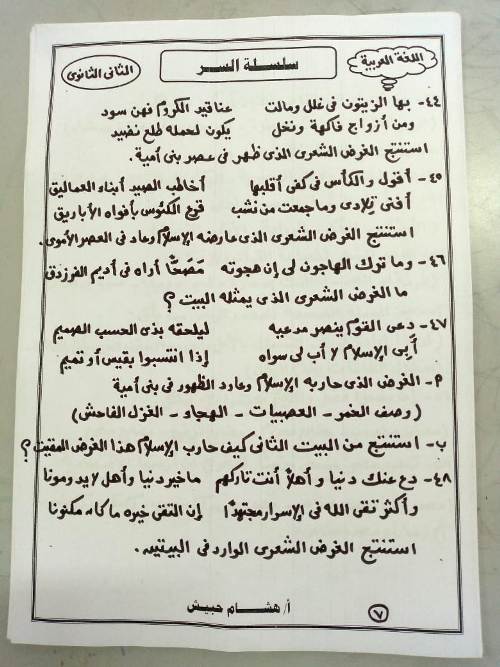 اللغة العربية
سلسلة السر
الثانى الثانوى
٤٤- بها الزيتون فى غلل ومالت عناقيد الكروم فهن سود
ومن أزواج فاكهة ونخل يكون لحمله طلع نضيد
استنتج الغرض الشعرى الذى ظهر فى عصر بنى أمية.
٤٥- أقول والكأس فى كفى أقلبها أخاطب الصيد أبناء العماليق
أفنى تلادى وما جمعت من نشب قرع الكئوس بأفواه الأباريق
استنتج الغرض الشعرى الذى عارضه الإسلام وعاد فى العصر الأموى.
٤٦- وما ترك الهاجون لى إن هجوته مَصَحًّا أراه فى أديم الفرزدق
ما الغرض الشعرى الذى يمثله البيت ؟
٤٧- دعى القوم ينصر مدعيه ليلحقه بذى الحسب الصميم
أبى الإسلام لا أب لى سواه إذا انتسبوا بقيس أو تميم
٩- الغرض الذى حاربه الإسلام وعاود الظهور فى بنى أمية
(وصف الخمر - العصبيات - الهجاء - الغزل الفاحش)
ب- استنتج من البيت الثانى كيف حارب الإسلام هذا الغرض المقيت ؟
٤٨- دع عنك دنيا وأهلاً أنت تاركهم ما خير دنيا وأهل لا يدومونا
وأكثر تقى الله فى الإسرار مجتهدًا إن التقى خيره ما كان مكنونا
استنتج الغرض الشعرى الوارد فى البيتين.
أ/ هشام حبيش
٧